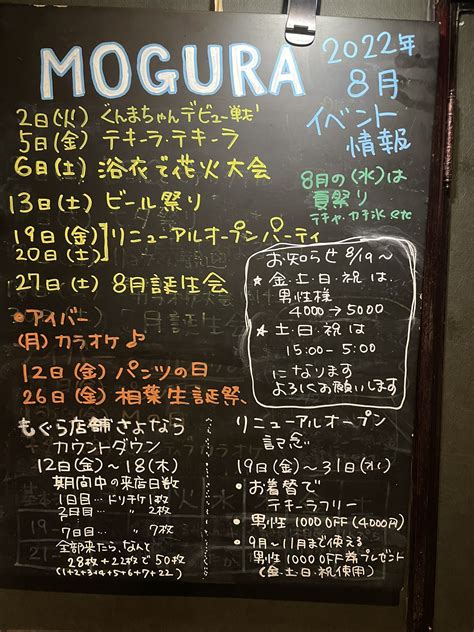 MOGURA
2022年
8月
イベント
情報
2日(火) くんまちゃんデビュー戦
5日(金) テキーラ・テキーラ
6日(土) 浴衣で花火大会
13日(土) ビール祭り
19日(金)
20日(土)
リニューアルオープンパーティ
27日(土) 8月誕生会
8月の(水)は
夏祭り
テキヤ・カキ氷 etc
お知らせ 8/19~
★ 金・土・日・祝は
男性様
4000→5000
★ 土・日・祝は
15:00-5:00
になります
よろしくお願いします
●アイバー
(月) カラオケ♪
12日(金) パンツの日
26日(金) 相葉生誕祭、
もぐら店舗さよなら
カウントダウン
12日(金)~18(木)
期間中の来店日数
1日目… ドリチケ1枚
2日目… 〃 2枚
7日目… 〃 7枚
全部来たら、なんて
28枚+22枚で50枚
(1+2+3+4+5+6+7+22)
リニューアルオープン
記念
19日(金)~31日(水)
• お着替で
テキーラフリー
• 男性 1000 OFF (4000円)
• 9月~11月まで使える
男性 1000 OFF 券プレゼント
(金・土・日・祝使用)